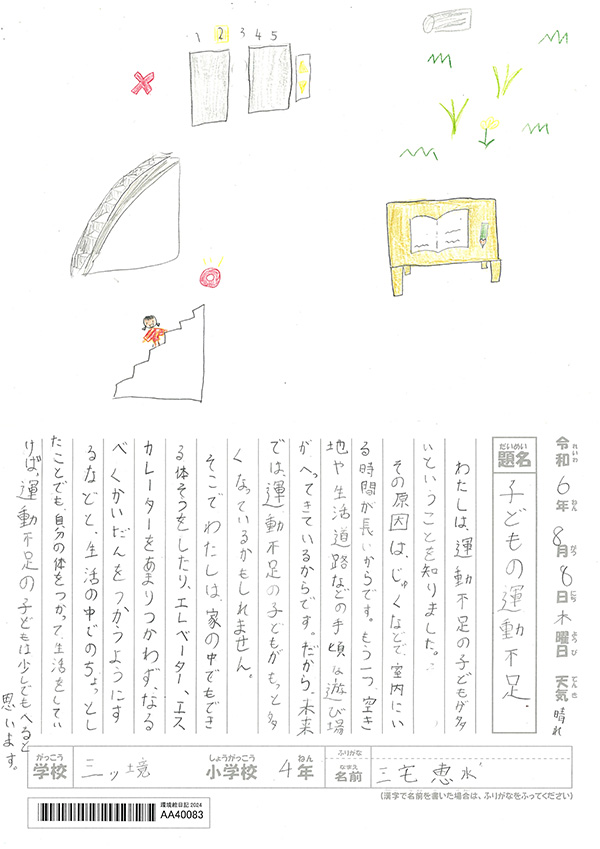 1 2 3 4 5
令和6年8月8日木曜日 天気 晴れ
れいわ ねん がつ にち ようび てんき
だいめい
題名 子どもの運動不足。
わたしは、運動不足の子どもが多
いということを知りました。
その原因は、じゅくなどで室内にい
る時間が長いからです。もう一つ、空き
地や生活道路などの手頃な遊び場
が、へってきているからです。だから、未来
では、運動不足の子どもがもっと多
くなっているかもしれません。
そこでわたしは、家の中でもでき
る体そうをしたり、エレベーター、エス
カレーターをあまりつかわず、なる
べくかいだんをつかうようにす
るなどと、生活の中でのちょっとし
たことでも、自分の体をつかって、生活をしてい
けば、運動不足の子どもは少しでもへると
思います。
がっこう しょうがっこう ねん ふりがな
学校 三ッ境 小学校 4年 なまえ 名前 三宅 恵水
(漢字で名前を書いた場合は、ふりがなをふってください)
環境絵日記 2024
AA40083